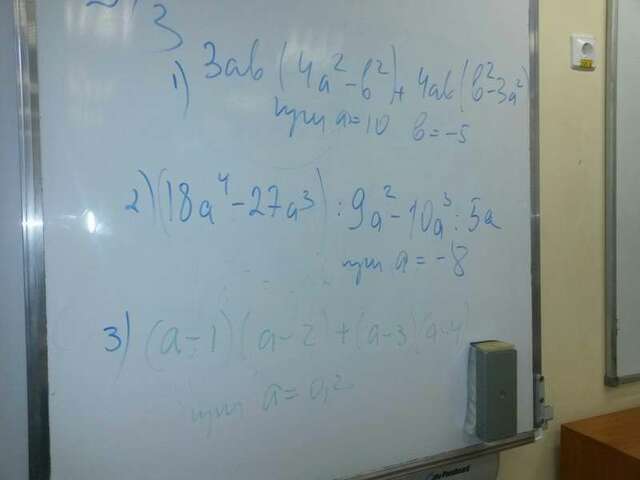 3
1) 3ab(4a²-b²)+4ab(b²-3a²)
при a=10 b=-5
2) (18a⁴-27a³):9a²-10a³:5a
при a=-8
3) (a-1)(a-2)+(a-3)(a-4)
при a=0,2